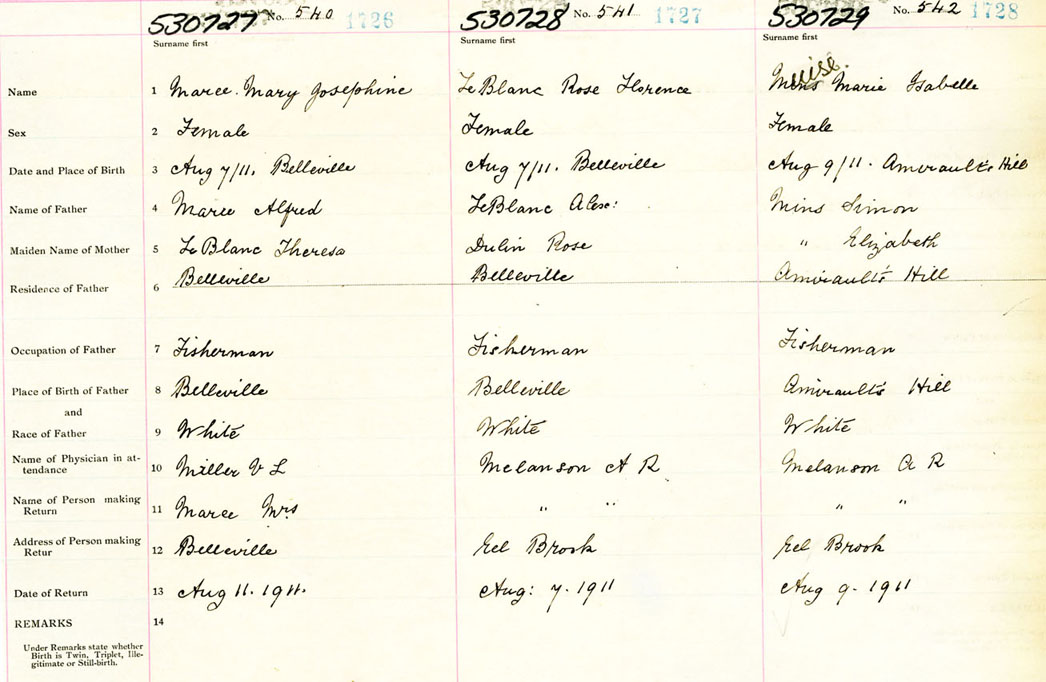 530727 No. 540 1726 530728 No. 541 1727 530729 No. 542 1728
Surname first Surname first Surname first
Muise.
Name 1 Maree. Mary Josephine LeBlanc Rose Florence Mins Marie Isabelle
Sex 2 Female Female Female
Date and Place of Birth 3 Aug 7/11. Belleville Aug 7/11. Belleville Aug 9/11. Amirault's Hill
Name of Father 4 Maree Alfred LeBlanc Alex: Mins Simon
Maiden Name of Mother 5 LeBlanc Theresa Dulin Rose " Elizabeth
Residence of Father 6 Belleville Belleville Amirault's Hill
Occupation of Father 7 Fisherman Fisherman Fisherman
Place of Birth of Father 8 Belleville Belleville Amirault's Hill
and
Race of Father 9 White White White
Name of Physician in at-
tendance 10 Miller V L Melanson A R Melanson A R
Name of Person making
Return 11 Maree Mrs " " " "
Address of Person making
Retur 12 Belleville Eel Brook Eel Brook
Date of Return 13 Aug 11. 1911. Aug: 7. 1911 Aug 9. 1911
REMARKS 14
Under Remarks state whether
Birth is Twin, Triplet, Ille-
gitimate or Still-birth.